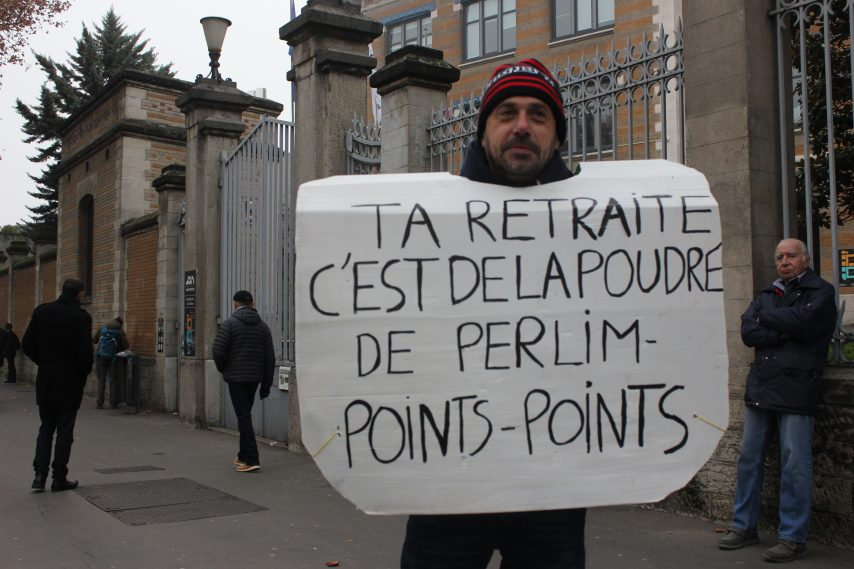 TA RETRAITE
C'EST DE LA POUDRE
DE PERLIM-
POINTS-POINTS